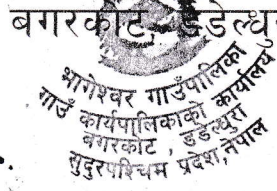 बगरकोट, डडेल्धु
भागेश्वर गाउँपालिका
गाउँ कार्यपालिकाको कार्यालय
बगरकोट, डडेल्धुरा
सुदुरपश्चिम प्रदेश, नेपाल